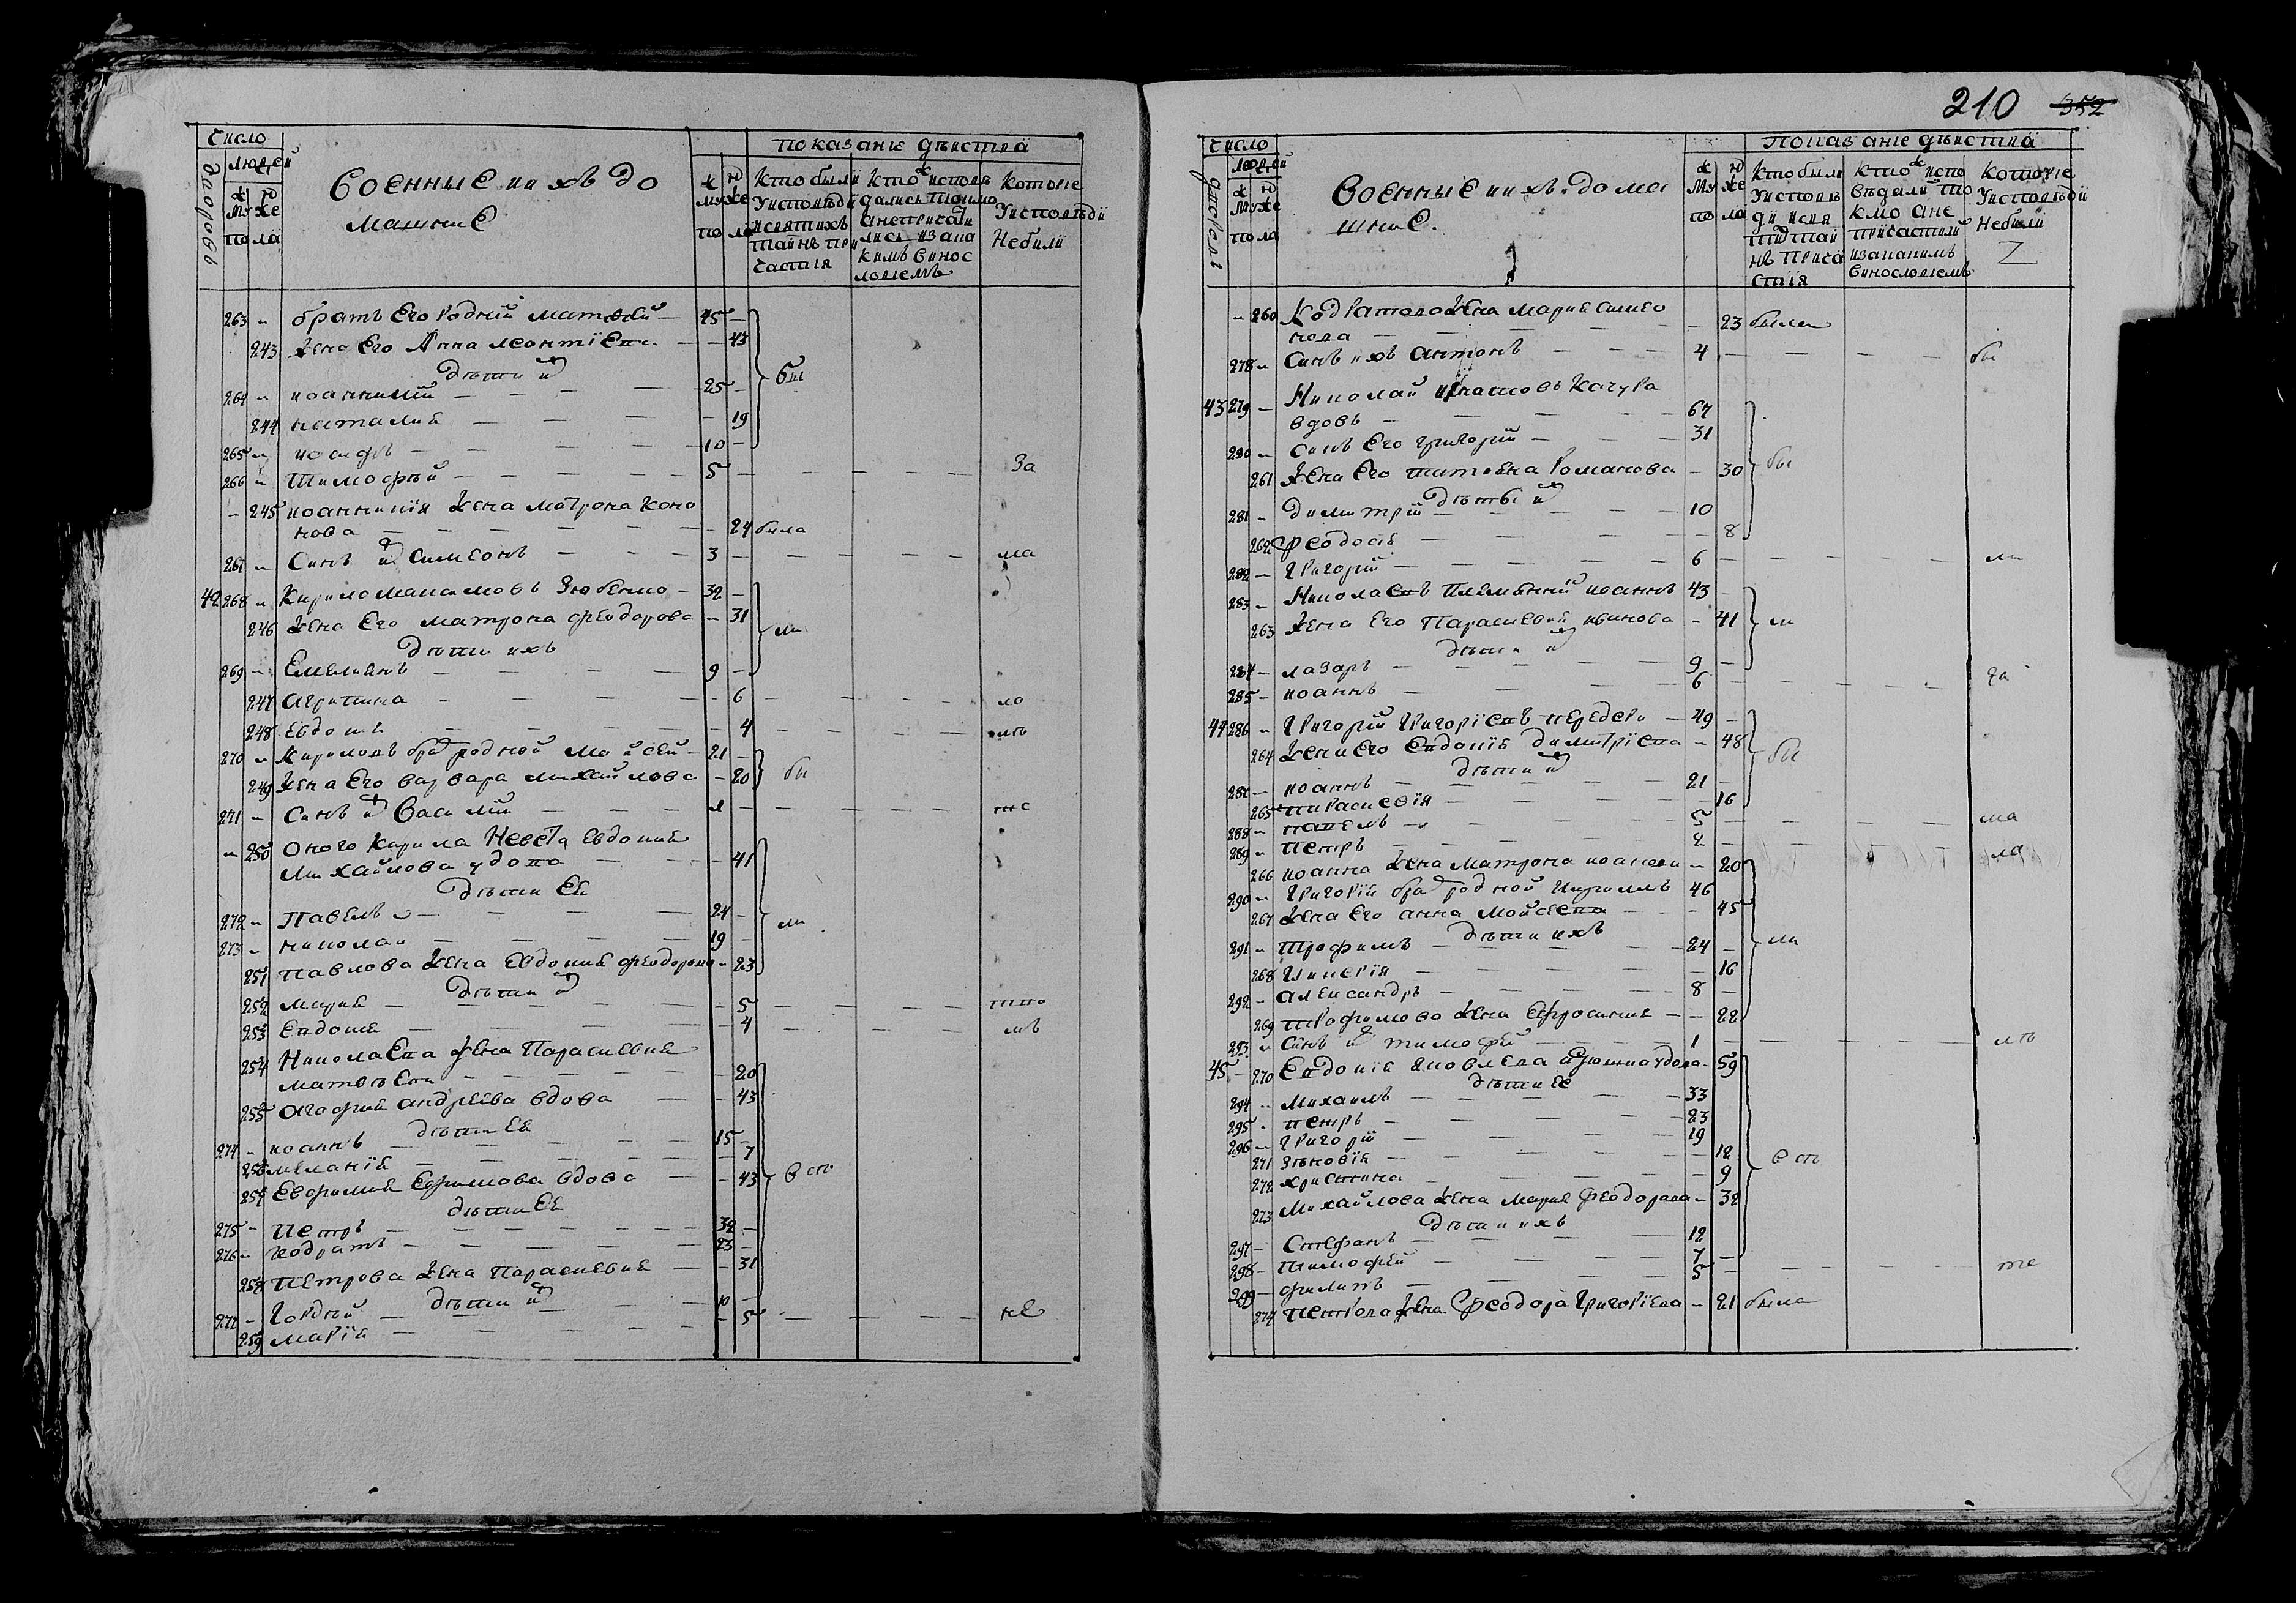 Число
людей
дворовъ
муже
пола
Военные и ихъ до
машние
муже
пола
показание дѣиствïй
Кто были
У исповѣди
и святихъ
таинъ при
частия
Кто исповѣ
дались токмо
а не причасти
лись и за ка
кимъ винос
ловиемъ
Которïе
У исповѣди
Не били
263 братъ Его Родний Матвей 45
243 Жена Его Анна Леонтïева 43
дѣти ихъ бы
264 иоанникïй 25
244 наталия 19
265 иосифъ 10
266 Тимофѣй 5 За
245 иоанникïя Жена Матрона Коно
нова 24 была
267 Синъ ихъ Симеонъ 3 ма
42 268 Кирило Максимовъ 32
246 Жена Его Матрона Феодорова 31 ли
дѣти ихъ
269 Емелианъ 9
247 Агрипина 6 ло
248 Евдокия 4 лѣ
270 Кириловъ братъ родной Мойсей 21
249 Жена Его Варвара Михайлова 20 бы
271 Синъ ихъ Василïй 1 тс
250 оного Кирила Невѣстка Евдокия
Михайлова удова 41
дѣти Ея
272 Павелъ 24 ли
273 николаи 19
251 Павлова Жена Евдокия Феодорова 23
дѣти ихъ
252 Мария 5
253 Евдокия 4 лѣ
254 Николаева Жена Параскевия
Матвѣева 20
255 Агафия Андрѣева вдова 43
дѣти Ея
274 иоаннъ 15
256 меланïя 7
257 Евфимия Ефимова вдова 43 в сѣ
дѣти Ея
275 Петръ 32
276 Кодратъ 23
258 Петрова Жена Параскевия 31
дѣти ихъ
277 Гордѣй 10
259 Марïя 5 не
210 352
Число
людей
дворовъ
муже
пола
Военние и ихъ дома
шние.
муже
пола
показание дѣиствïй
Кто были
У исповѣ
ди и свя
тихъ таи
нъ прича
стïя
Кто испо
вѣдали то
кмо а не
причастили
и за какимъ
винословиемъ
Которïе
У исповѣди
Небили
260 Кодратова Жена Мария Симео
нова 23 была
278 Синъ ихъ Антонъ 4 бы
43 279 Николай Игнатовъ Качура
вдовъ 67
280 Синъ Его Григорïй 31
261 Жена Его Романова 30 бы
дѣти ихъ
281 Димитрïй 10
262 Феодосия 8
282 Григорïй 6 ли
283 Николаевъ Племянникъ иоаннъ 43
263 Жена Его Параскевия 41 ли
дѣти ихъ
284 лазаръ 9
285 иоаннъ 6 За
44 286 Григорïй Григорïевъ 49
264 Жена Его Евдокïя Димитрïева 48 бы
дѣти ихъ
287 иоаннъ 21
265 Параскевïя 16
288 Павелъ 5 ма
289 Петръ 2 ло
266 иоанна Жена Матрона 20
290 Григорïя братъ родной Кирилъ 46
267 Жена Его Анна Мойсеева 45
дѣти ихъ ли
291 Трофимъ 24
268 Гликерïя 16
292 Александръ 8
269 Трофимова Жена Ефросиния 22
293 Синъ ихъ Тимофей 1 лѣ
45 270 Евдокïя Яковлева удова 59
дѣти Ее
294 Михаилъ 33
295 Петръ 23
296 Григорïй 19
271 Зѣновïя 12 в сѣ
272 Христина 9
273 Михайлова Жена Мария Феодорова 32
дѣти ихъ
297 Стефанъ 12
298 Тимофей 7
299 Филипъ 5 же
274 Петрова Жена Феодора Григорïева 21 была